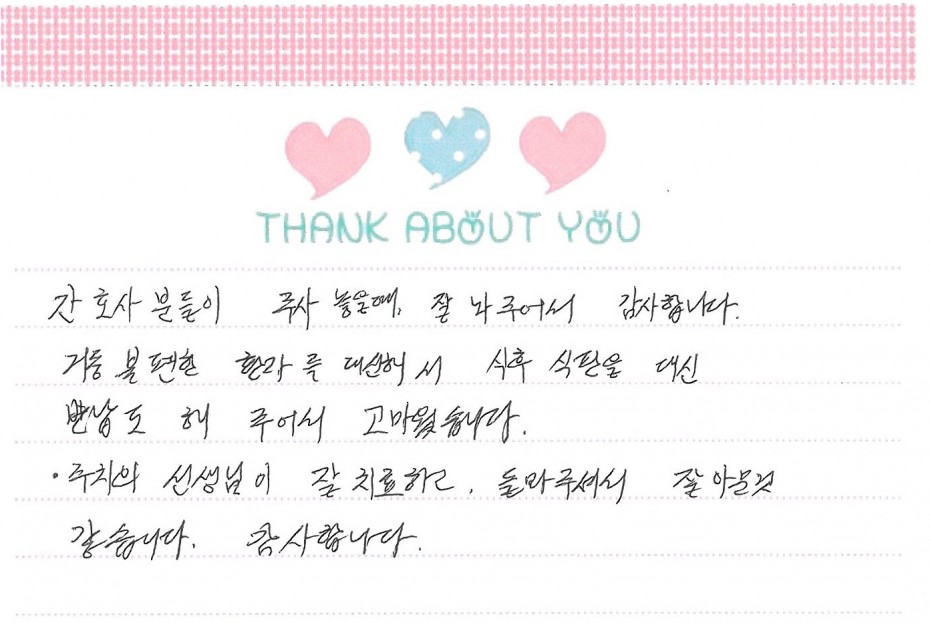 THANK ABOUT YOU
간호사 분들이 주사 놓을때, 잘 놔 주어서 감사합니다.
거동 불편한 환자를 대신해서 식후 식판을 대신
반납도 해 주어서 고마웠습니다.
· 주치의 선생님이 잘 치료하고, 돌봐주셔서 잘 아문것
같습니다. 감사합니다.